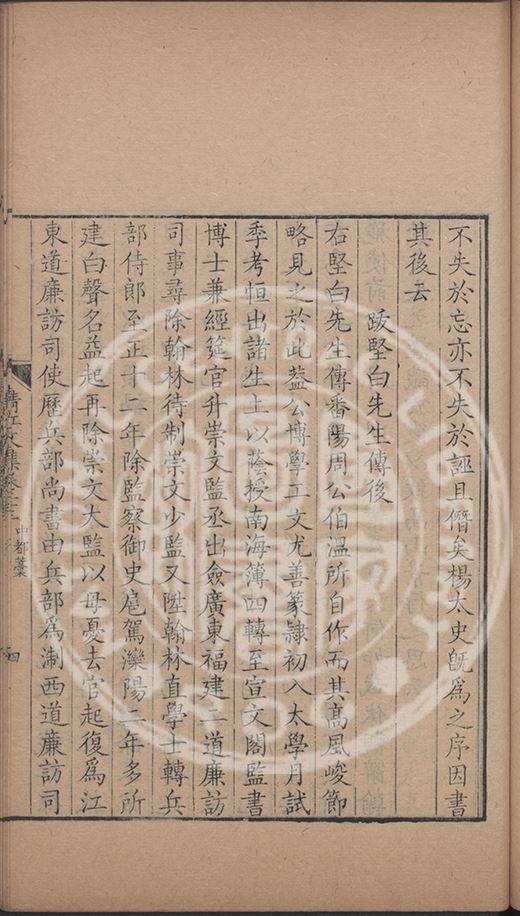 不失於忘亦不失於誣且僭矣楊太史旣爲之序因書
其後云
跋堅白先生傳後
右堅白先生傳番陽周公伯溫所自作而其髙風峻節
略見之於此葢公博學工文尤善篆隷初入太學月試
季考恒出諸生上以蔭授南海簿四轉至宣文閣監書
博士兼經筵官升崇文監丞出僉廣東福建二道廉訪
司事尋除翰林待制崇文少監又陞翰林直學士轉兵
部侍郎至正十二年除監察御史扈駕灤陽二年多所
建白聲名益起再除崇文大監以母憂去官起復爲江
東道廉訪司使歷兵部尚書由兵部爲淛西道廉訪司
清江文集卷二十三
中都藁
四